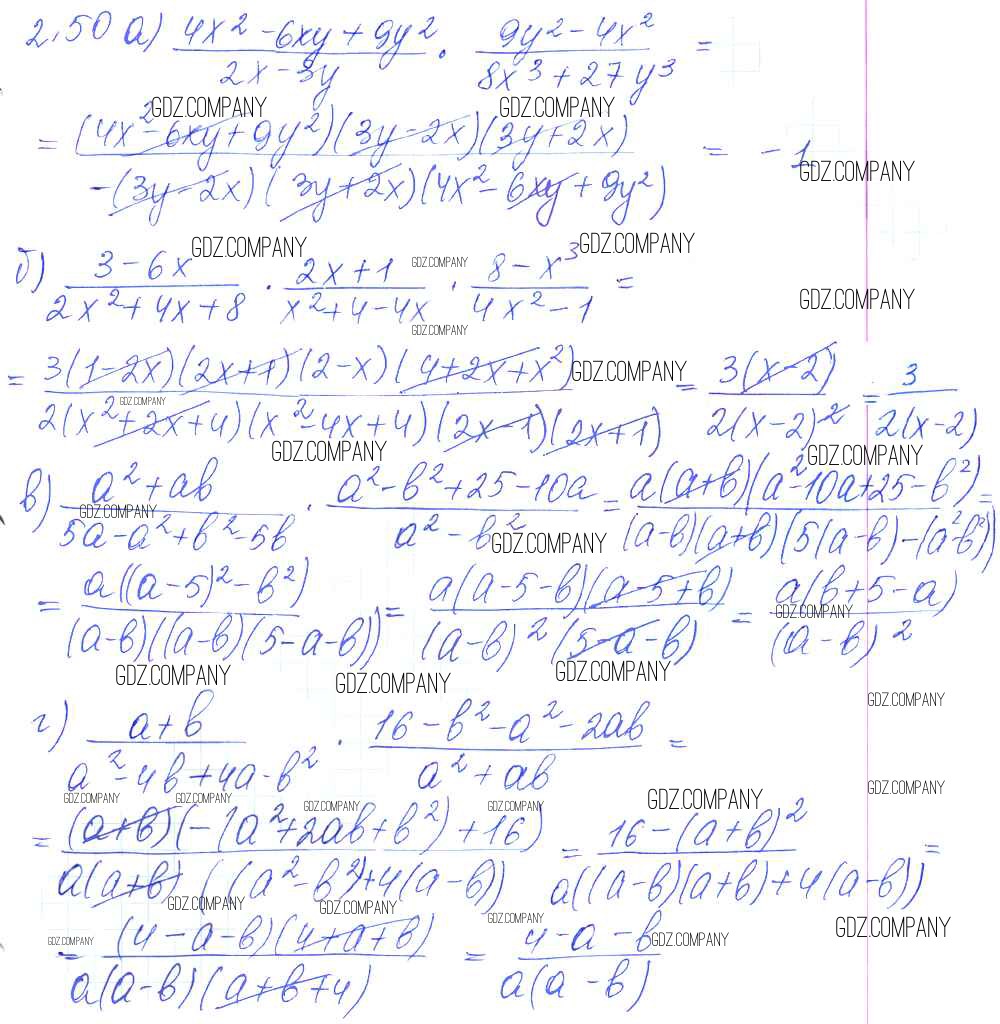 2.50 а) (4x² - 6xy + 9y²)/(2x - 3y) · (9y² - 4x²)/(8x³ + 27y³) =
GDZ.COMPANY GDZ.COMPANY
= (4x² - 6xy + 9y²)(3y - 2x)(3y + 2x) / -(3y - 2x)(3y + 2x)(4x² - 6xy + 9y²) = -1
GDZ.COMPANY
GDZ.COMPANY GDZ.COMPANY
б) (3 - 6x)/(2x² + 4x + 8) · (2x + 1)/(x² + 4 - 4x) · (8 - x³)/(4x² - 1) =
GDZ.COMPANY GDZ.COMPANY
GDZ.COMPANY
= 3(1 - 2x)(2x + 1)(2 - x)(4 + 2x + x²) / 2(x² + 2x + 4)(x² - 4x + 4)(2x - 1)(2x + 1) = 3(x - 2)/2(x - 2)² = 3/2(x - 2)
GDZ.COMPANY GDZ.COMPANY
GDZ.COMPANY GDZ.COMPANY
в) (a² + ab)/(5a - a² + b² - 5b) · (a² - b² + 25 - 10a)/(a² - b²) = a(a + b)(a² - 10a + 25 - b²)/(a - b)(a + b)(5(a - b) - (a² - b²)) =
GDZ.COMPANY GDZ.COMPANY
= a((a - 5)² - b²)/(a - b)((a - b)(5 - a - b)) = a(a - 5 - b)(a - 5 + b)/(a - b)²(5 - a - b) = a(b + 5 - a)/(a - b)²
GDZ.COMPANY
GDZ.COMPANY GDZ.COMPANY GDZ.COMPANY
GDZ.COMPANY
г) (a + b)/(a² - 4b + 4a - b²) · (16 - b² - a² - 2ab)/(a² + ab) =
GDZ.COMPANY
GDZ.COMPANY GDZ.COMPANY GDZ.COMPANY GDZ.COMPANY GDZ.COMPANY
= (a + b)(-(a² + 2ab + b²) + 16)/a(a + b)((a² - b²) + 4(a - b)) = 16 - (a + b)²/a((a - b)(a + b) + 4(a - b)) =
GDZ.COMPANY GDZ.COMPANY GDZ.COMPANY GDZ.COMPANY
= (4 - a - b)(4 + a + b)/a(a - b)(a + b + 4) = 4 - a - b/a(a - b)
GDZ.COMPANY GDZ.COMPANY